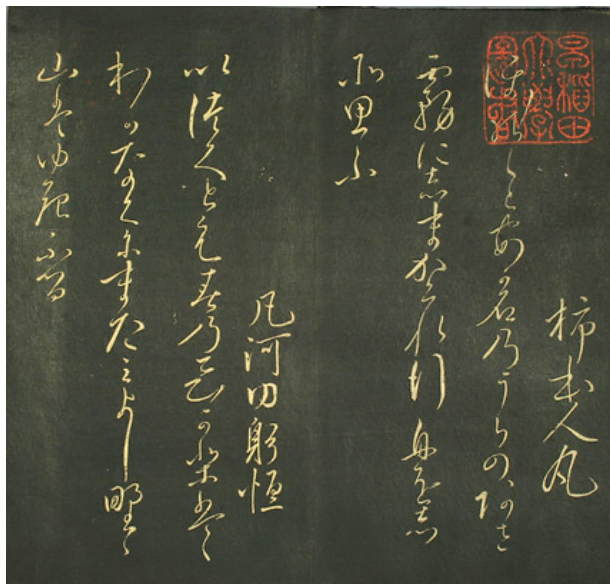 柿本人丸
ほの〱とあかしのうらのあさ
霧にしまかくれ行舟をし
そ思ふ
凡河内躬恒
いつくとも春のひかりは
わかなくにまたみよし野の
山はゆきふる